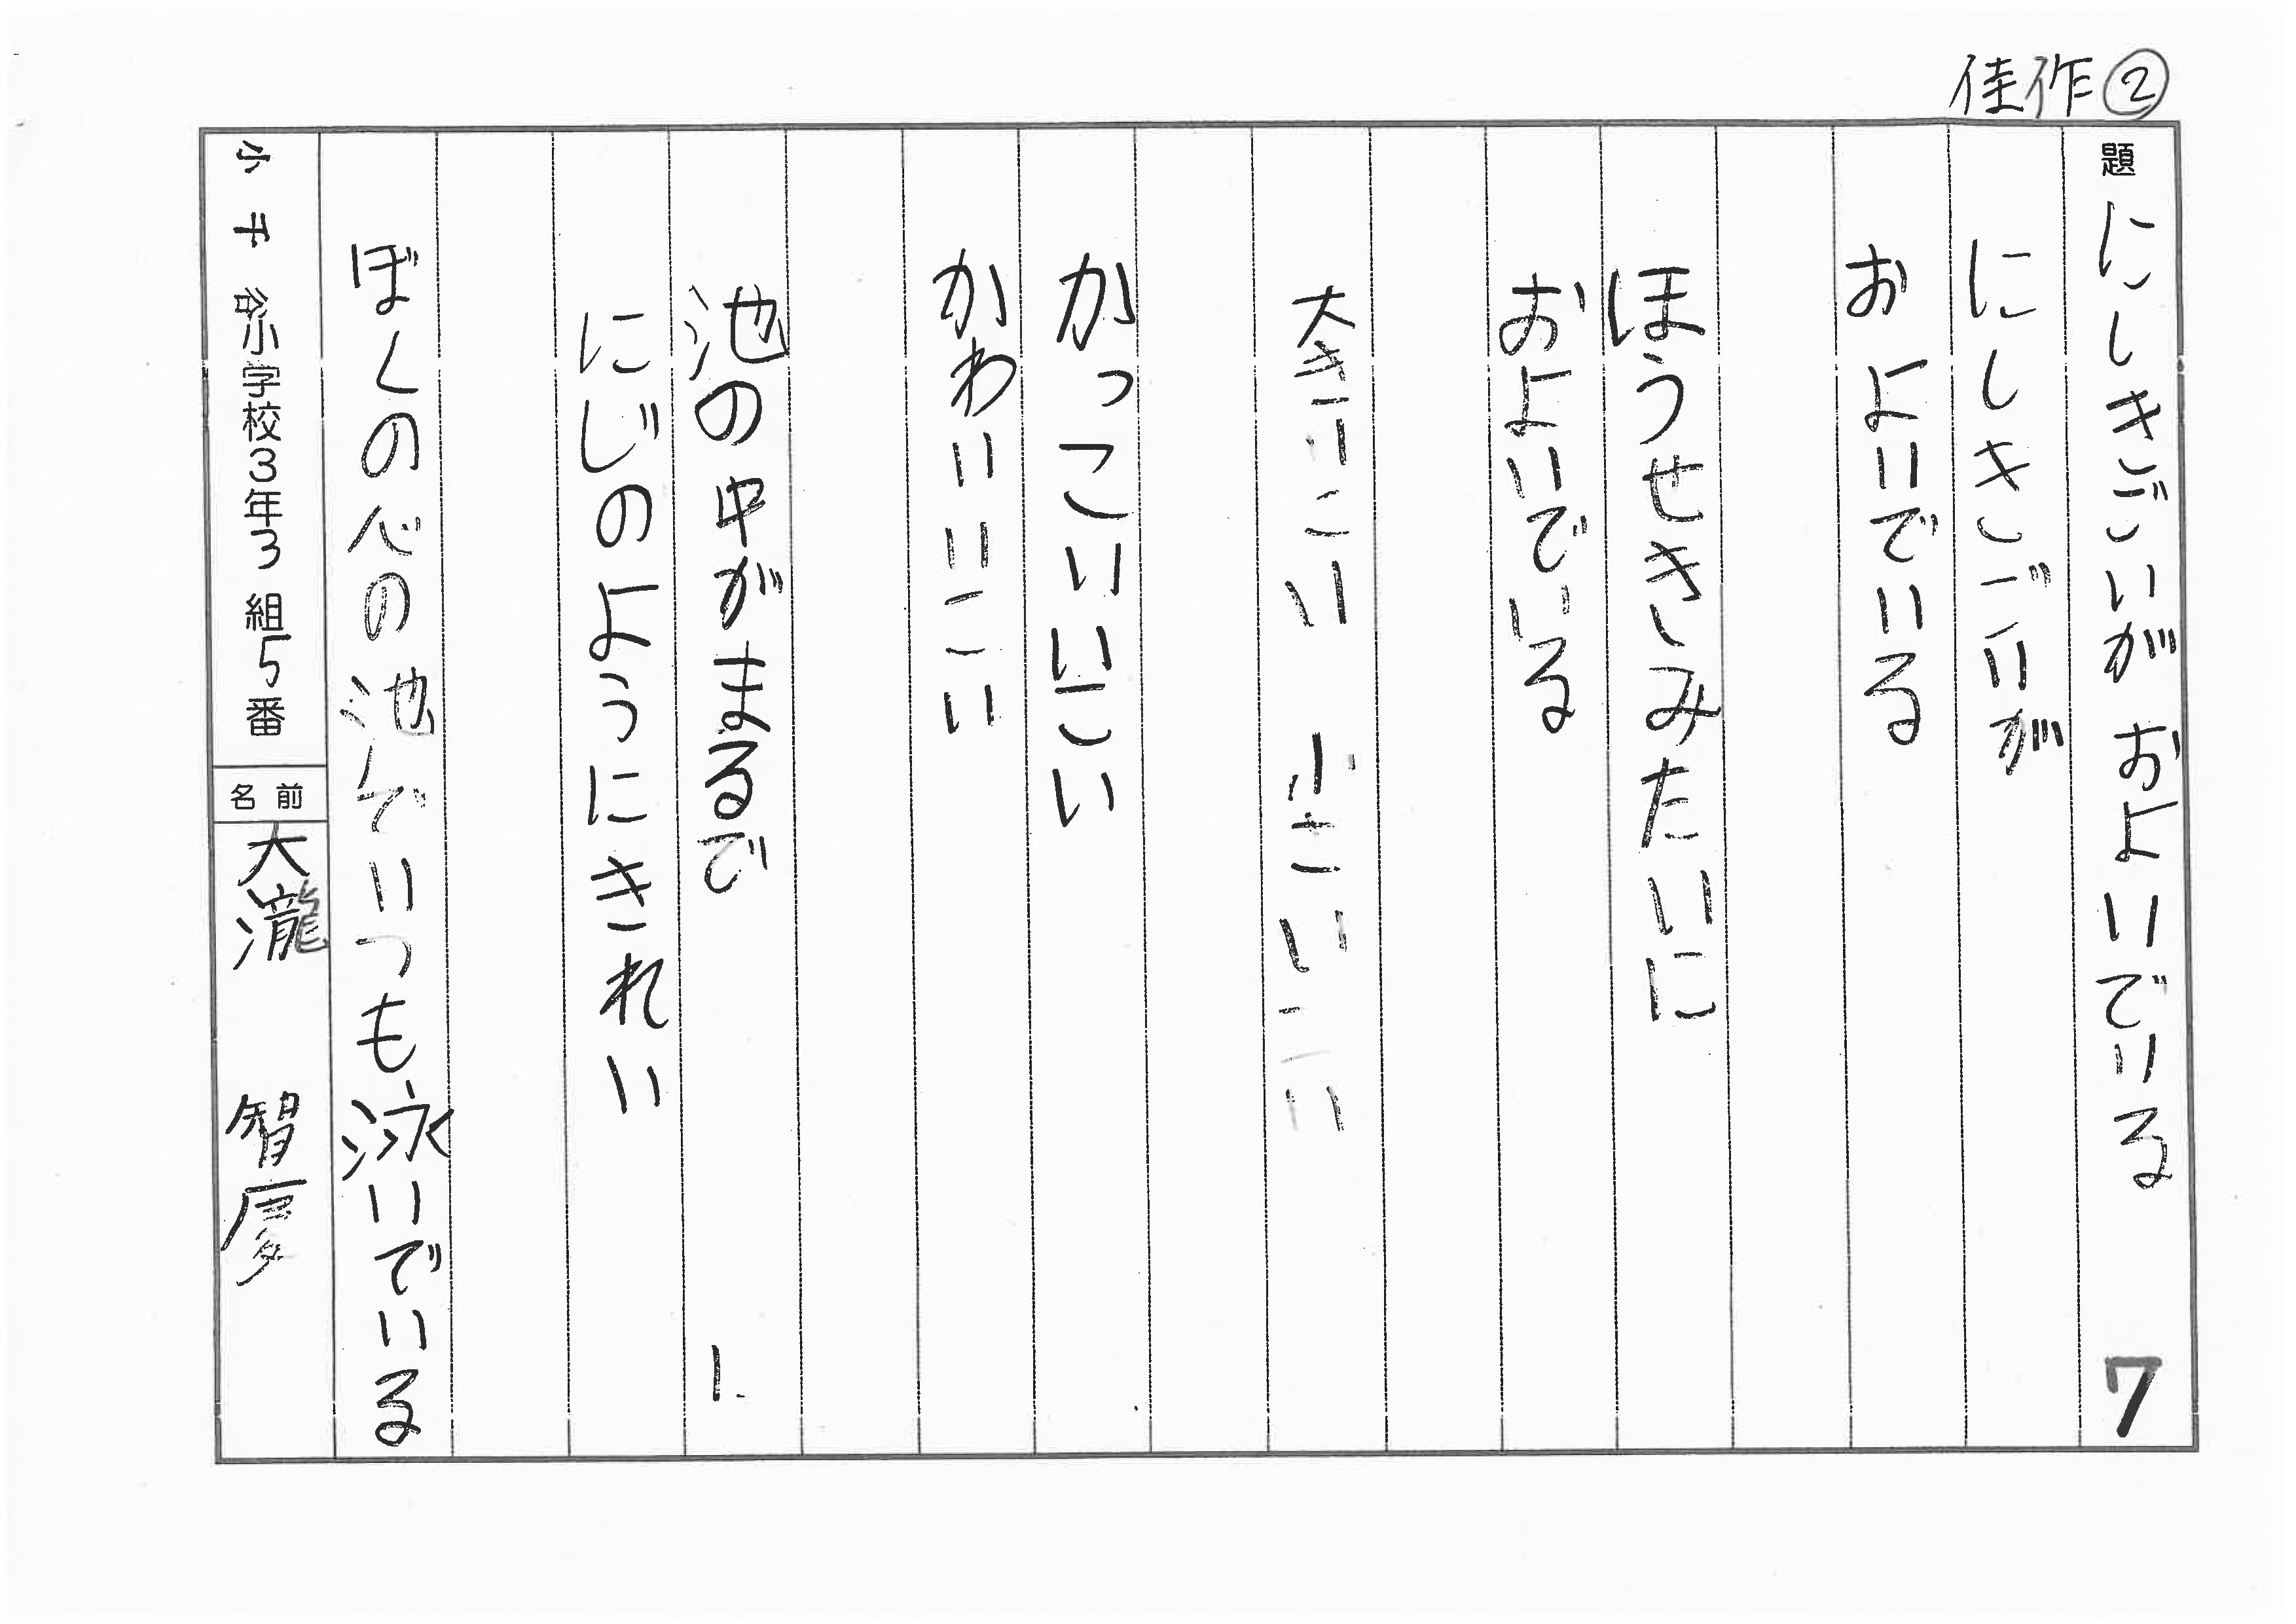 佳作②
題 にしきごいが およいでいる 7
にしきごいが
およいでいる
ほうせきみたいに
およいでいる
大きいこい 小さいこい
かっこいいこい
かわいいこい
池の中がまるで
にじのようにきれい
ぼくの心の池でいつも泳いでいる
小千谷小学校3年3組5番
名前 大瀧 智慶